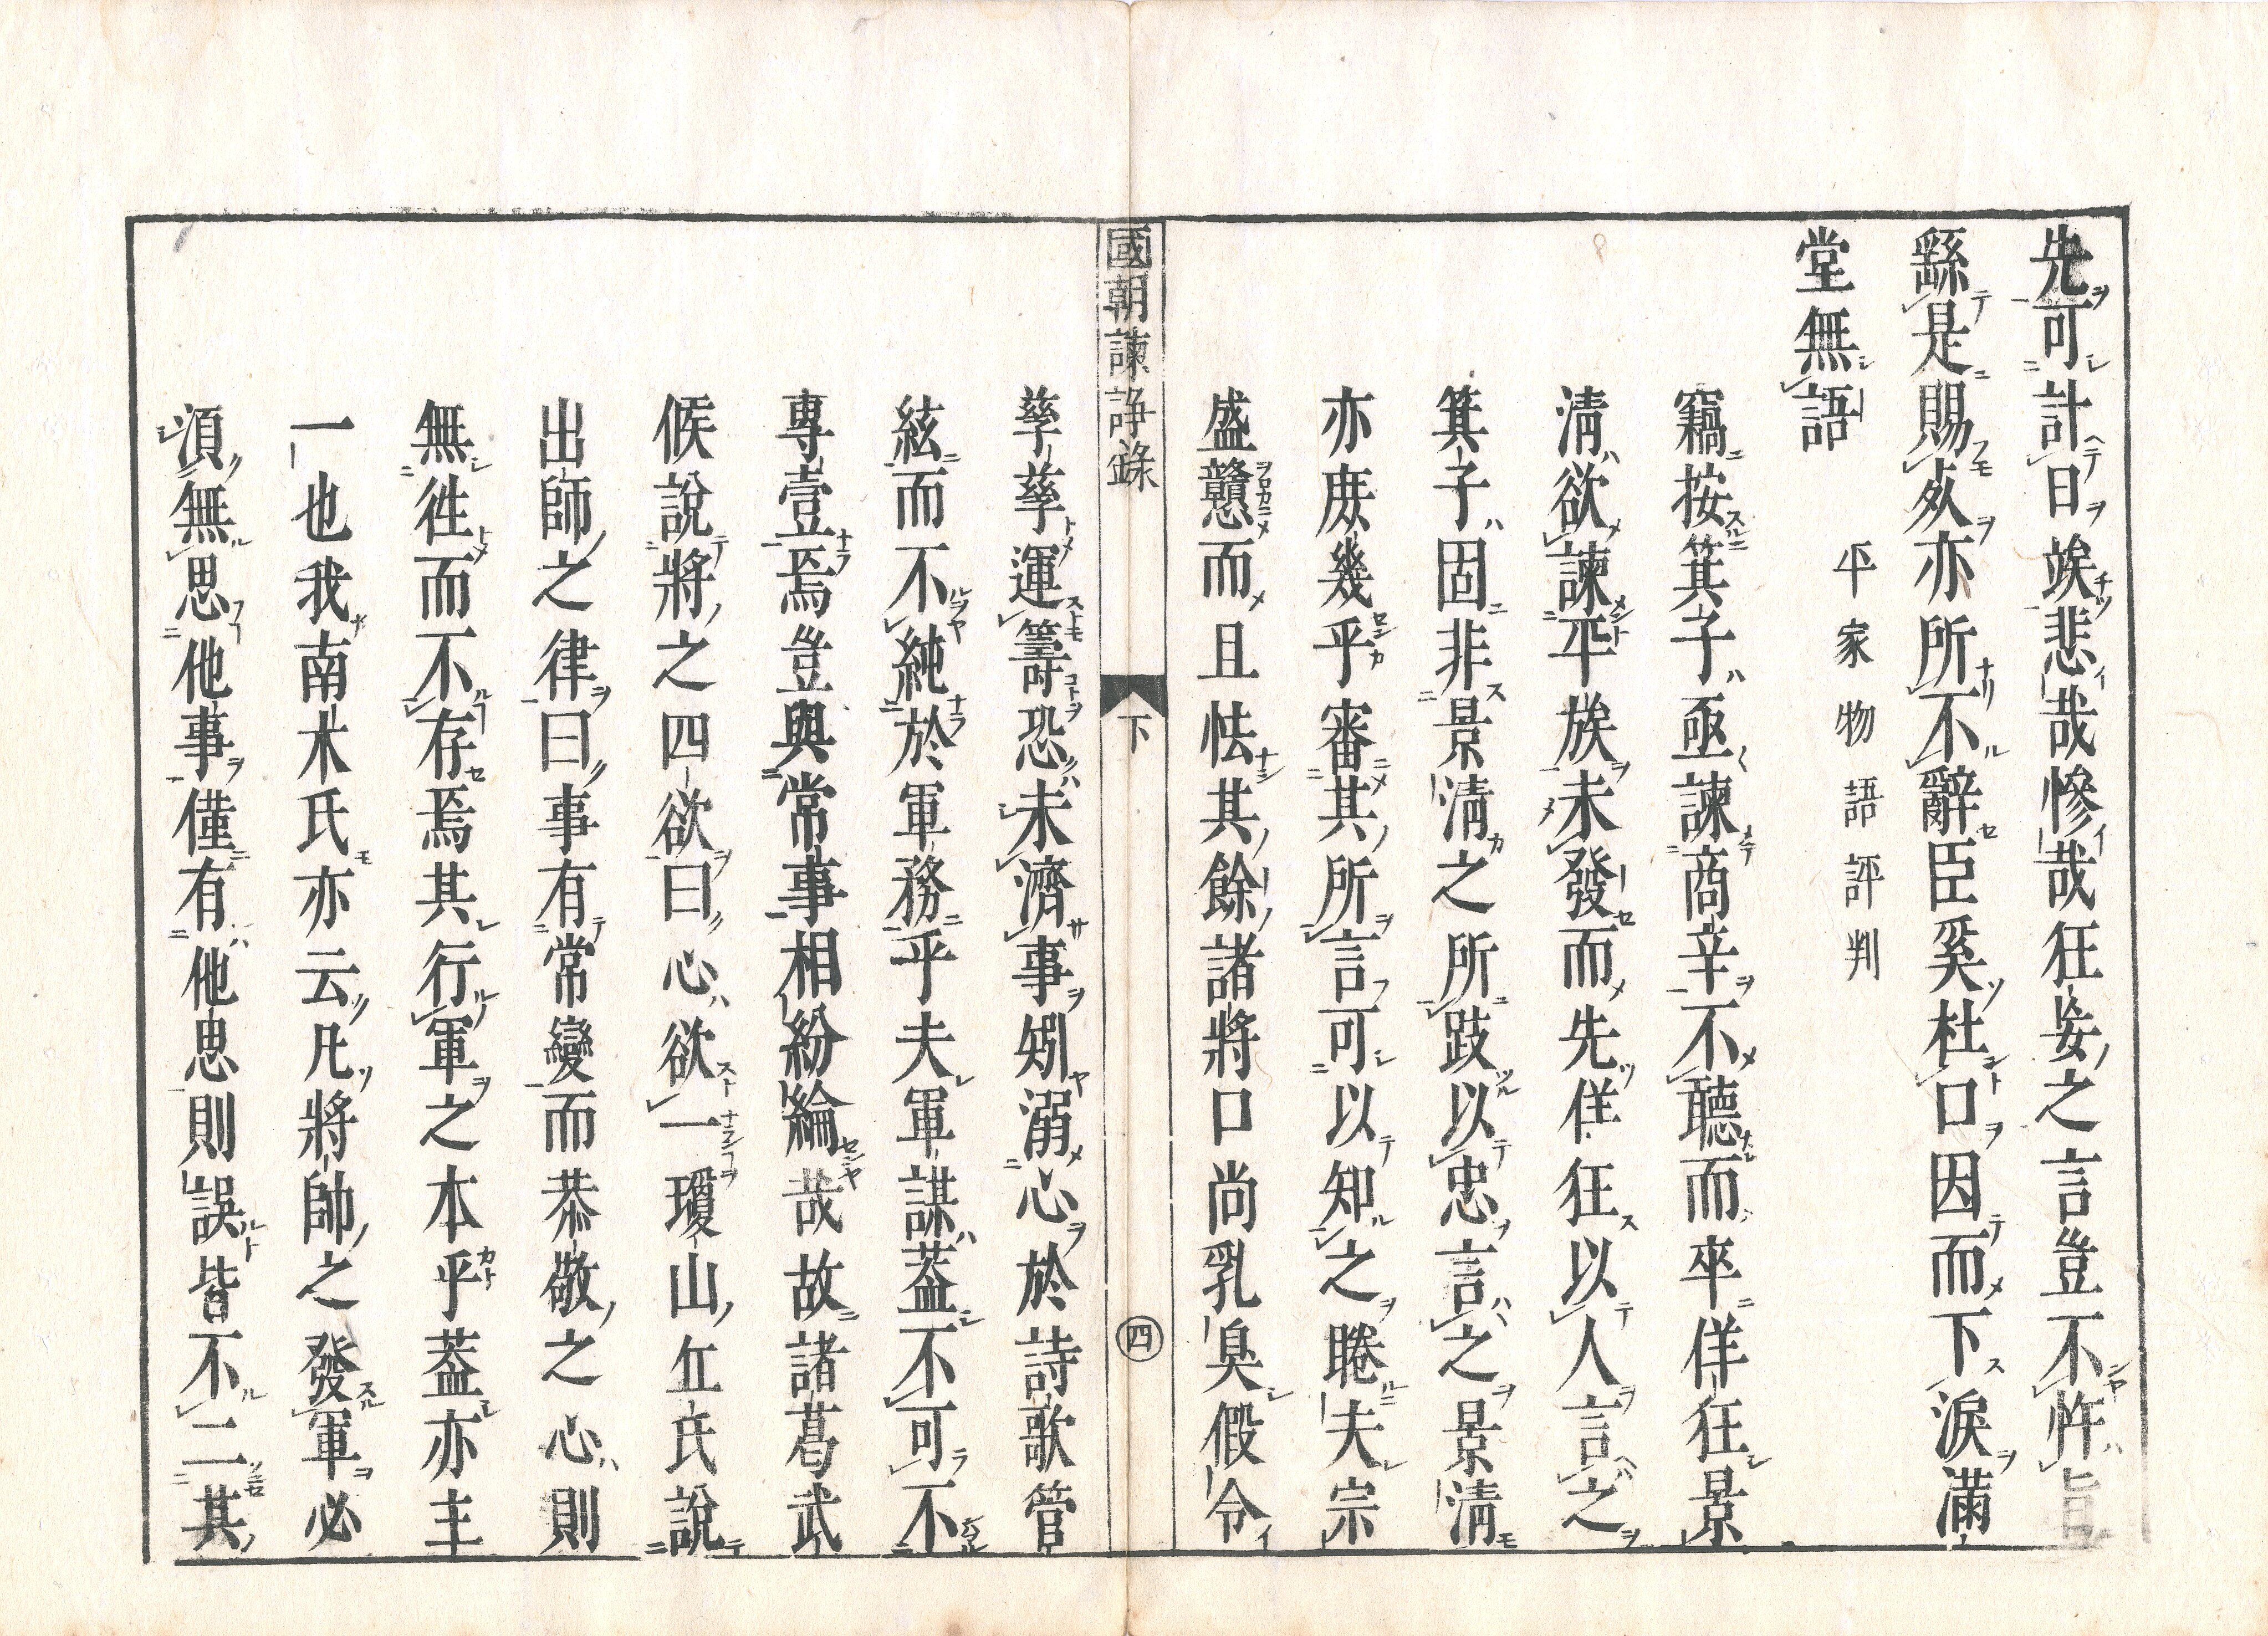 先可計日竢悲哉慘哉狂妄之言豈不忤旨
繇是賜死亦所不辭臣奚杜口因而下淚滿
堂無語　平家物語評判
竊按箕子亟諫商辛不聽而卒佯狂景
淸欲諫平族未發而先佯狂以人言之
箕子固非景淸之所跂以忠言之景淸
亦庶幾乎審其所言可以知之睠夫宗
盛戇而且怯其餘諸將口尚乳臭假令
國朝諫諍錄　下　四
孳孳運籌恐未濟事矧溺心於詩歌管
絃而不純於軍務乎夫軍謀葢不可不
專壹焉豈與常事相紛綸哉故諸葛武
候說將之四欲曰心欲一瓊山丘氏說
出師之律曰事有常變而恭敬之心則
無徃而不存焉其行軍之本乎葢亦主
一也我南木氏亦云凡將帥之發軍必
須無思他事僅有他思則誤皆不二其